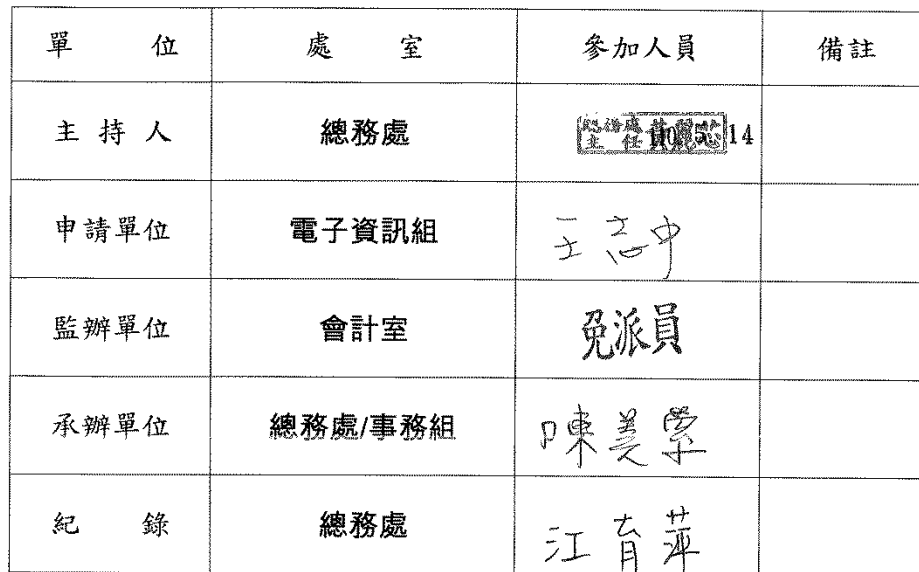 單 位 處 室 參加人員 備註
主 持 人 總務處 總務處主任 14
申請單位 電子資訊組 王志中
監辦單位 會計室 免派員
承辦單位 總務處/事務組 陳美
紀 錄 總務處 江育萍